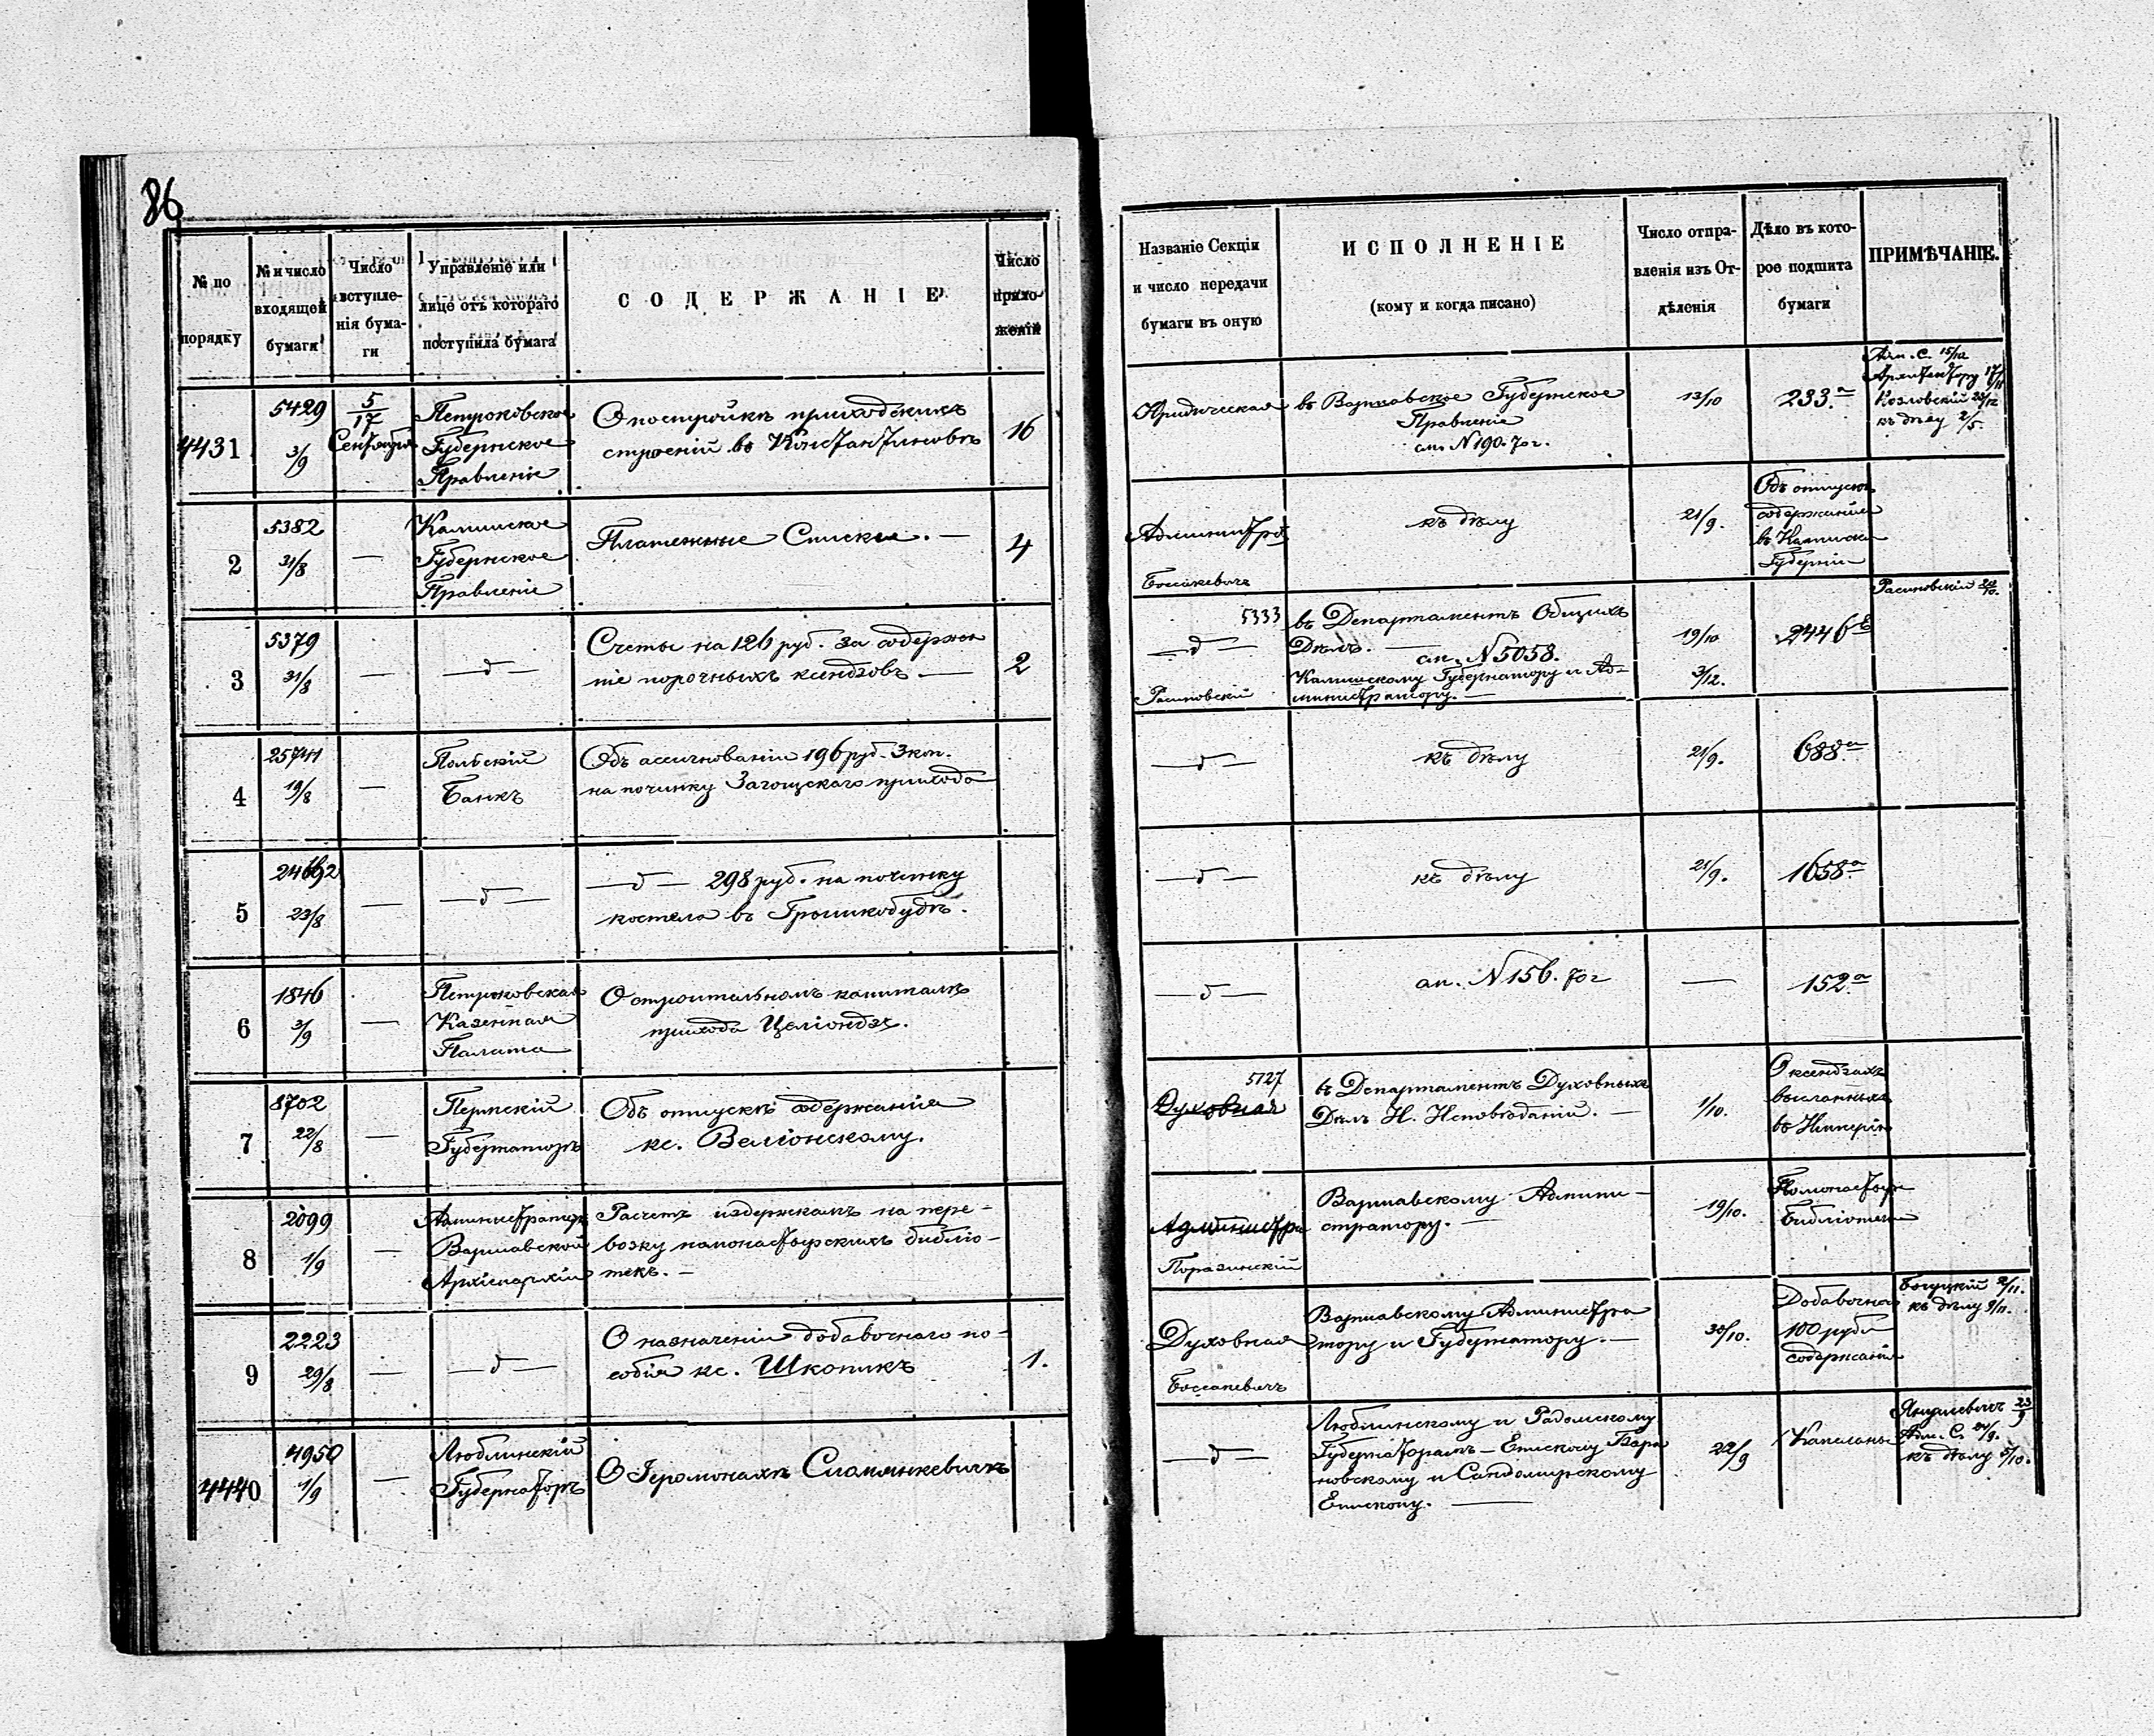 86
№ по порядку
№ и число входящей бумаги
Число вступле-нія бума-ги
Управленіе или лице отъ котораго поступила бумага
СОДЕРЖАНІЕ
Число прило-женій
Названіе Секціи и число передачи бумаги въ оную
ИСПОЛНЕНІЕ
(кому и когда писано)
Число отпра-вленія изъ От-дѣленія
Дѣло въ кото-рое подшита бумаги
ПРИМѢЧАНІЕ.
4431
5429
3/9
5/17
Сентября
Петроковское
Губернское
Правленіе
О постройкѣ приходскихъ
строеній въ Константиновѣ
16
Юридическая
въ Варшавское Губернское
Правленіе
сп. N 190. 70 г.
13/10
233.а
Адм. С. 15/10
Архитектору
Козловскій 23/12
къ дѣлу 2/5.
2
5382
31/8
—
Калишское
Губернское
Правленіе
Платежные Списки. —
4
Администра
къ дѣлу
21/9.
Объ отпускѣ
содержанія
въ Калишской
Губерніи
3
5379
31/8
—
— д —
Счеты на 126 руб. за содержа
ніе порочныхъ ксендзовъ —
2
5333
— д —
въ Департаментъ Общихъ
Дѣлъ. —
сп. N 5058.
Калишскому Губернатору и Ад-
министратору. —
19/10
3/12.
2446
4
25741
19/8
—
Польскій
Банкъ
Объ ассигнованіи 196 руб. 3 коп.
на починку Загощскаго прихода
— д —
къ дѣлу
21/9.
688.а
5
23/8
—
— д —
— д — 298 руб. на починку
костела въ Гришкобудѣ.
— д —
къ дѣлу
21/9.
1658.а
6
1846
3/9
—
Петроковская
Казенная
Палата
О строительномъ капиталѣ
прихода Целіондзь.
— д —
сп. N 156. 70 г
—
152.а
7
8702
22/8
—
Пермскій
Губернаторъ
Объ отпускѣ содержанія
кс. Веліонскому.
5127
Духовная
въ Департаментъ Духовныхъ
Дѣлъ И. Исповѣданій. —
1/10.
О ксендзахъ
высланныхъ
въ Имперію
8
2099
1/9
—
Администраторъ
Варшавской
Архіепархіи
Расчетъ издержкамъ на пере-
возку помонастырскихъ библіо-
текъ. —
Администра
Поразинскій
Варшавскому Админи-
стратору. —
19/10.
Помонастыр
Библіотеки
9
2223
29/8
—
— д —
О назначеніи добавочнаго по-
собія кс. Шкопикъ
1.
Духовная
Варшавскому Администра
тору и Губернатору. —
30/10.
Добавочное
100 рубл
содержанія
къ дѣлу 9/11.
4440
4950
1/9
—
Люблинскій
Губернаторъ
О Іеромонахѣ Сломянкевичѣ
— д —
Люблинскому и Радомскому
Губернаторамъ — Епископу Бара
новскому и Сандомирскому
Епископу. —
22/9
Капеланы
Янушевичъ 23/9
Адм. С. 24/9.
къ дѣлу 5/10.